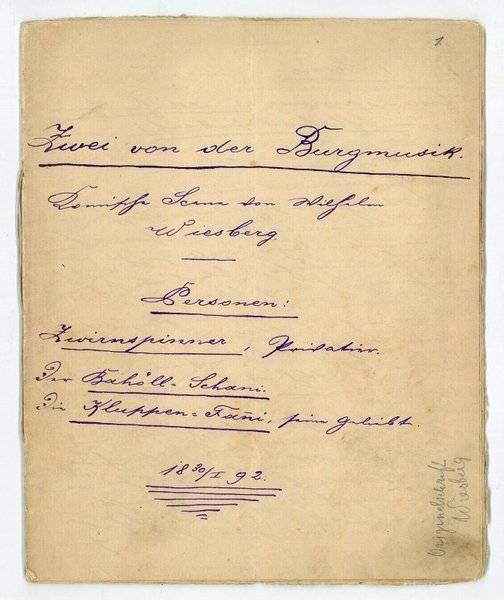 1.
Zwei von der Burgmusik.
Komische Scene von Wilhelm
Wiesberg.
Personen:
Zwirnspinner, Privatier.
Der Bahöll-Schani.
Die Kluppen-Fañi, sein Geliebt.
18 30/I 92.
Originalschrift
Wiesberg